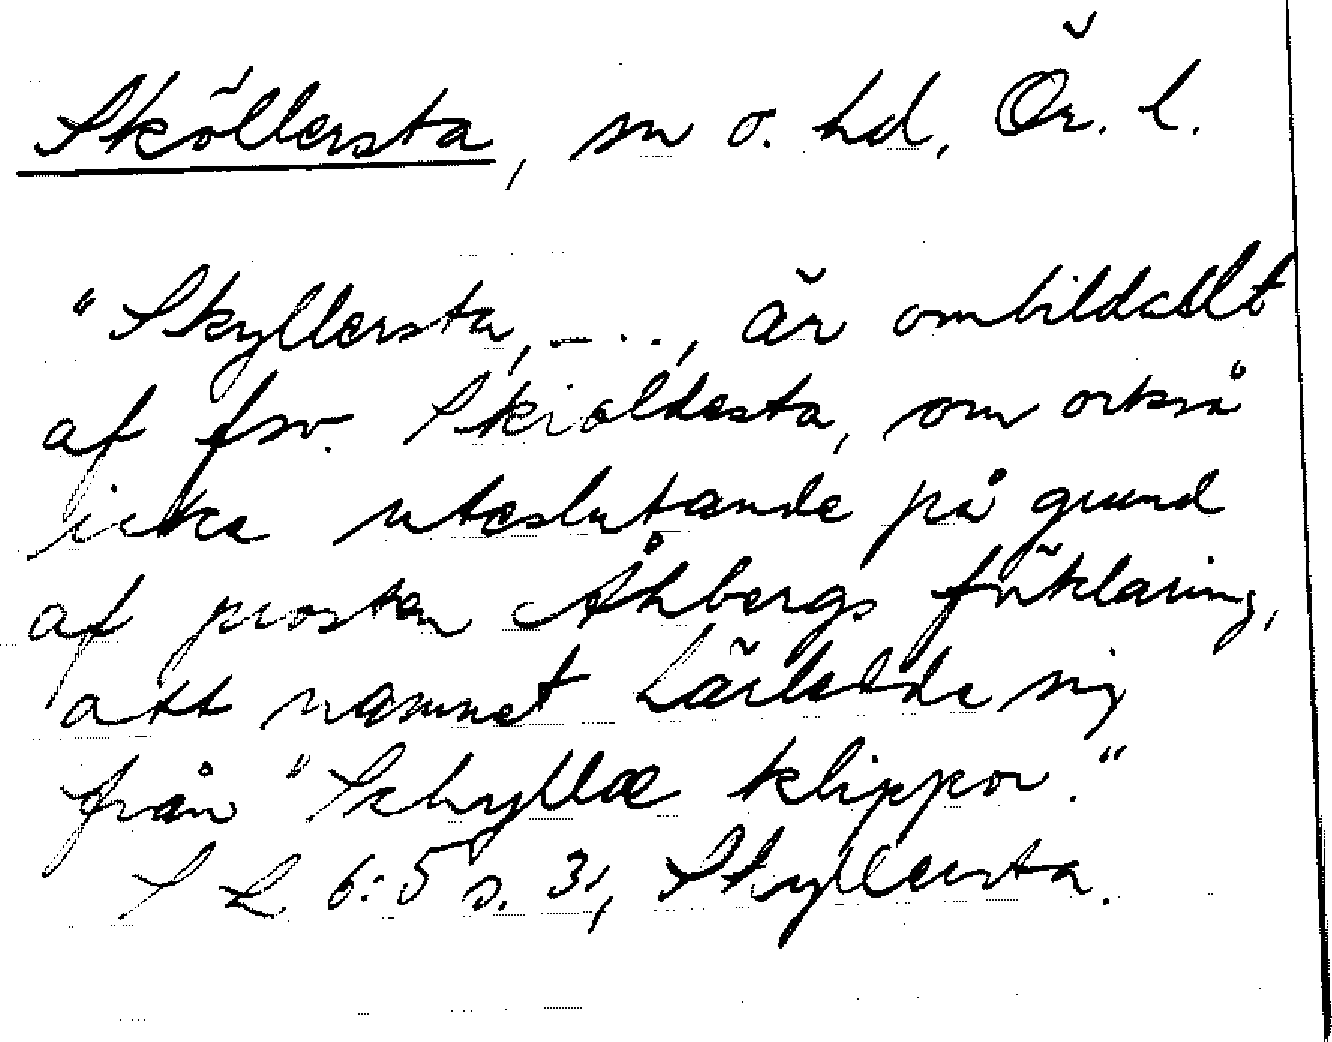 Sköllersta, sn o. hd, Ör. l.
"Skyllersta, - . ., är ombildadt
af fsv. Skioldesta, om också
icke uteslutande på grund
af prosten Åhbergs förklaring,
att namnet härledde sig
från "Schyllæ klippor."
SL 6:5 s. 3, Skyllersta.